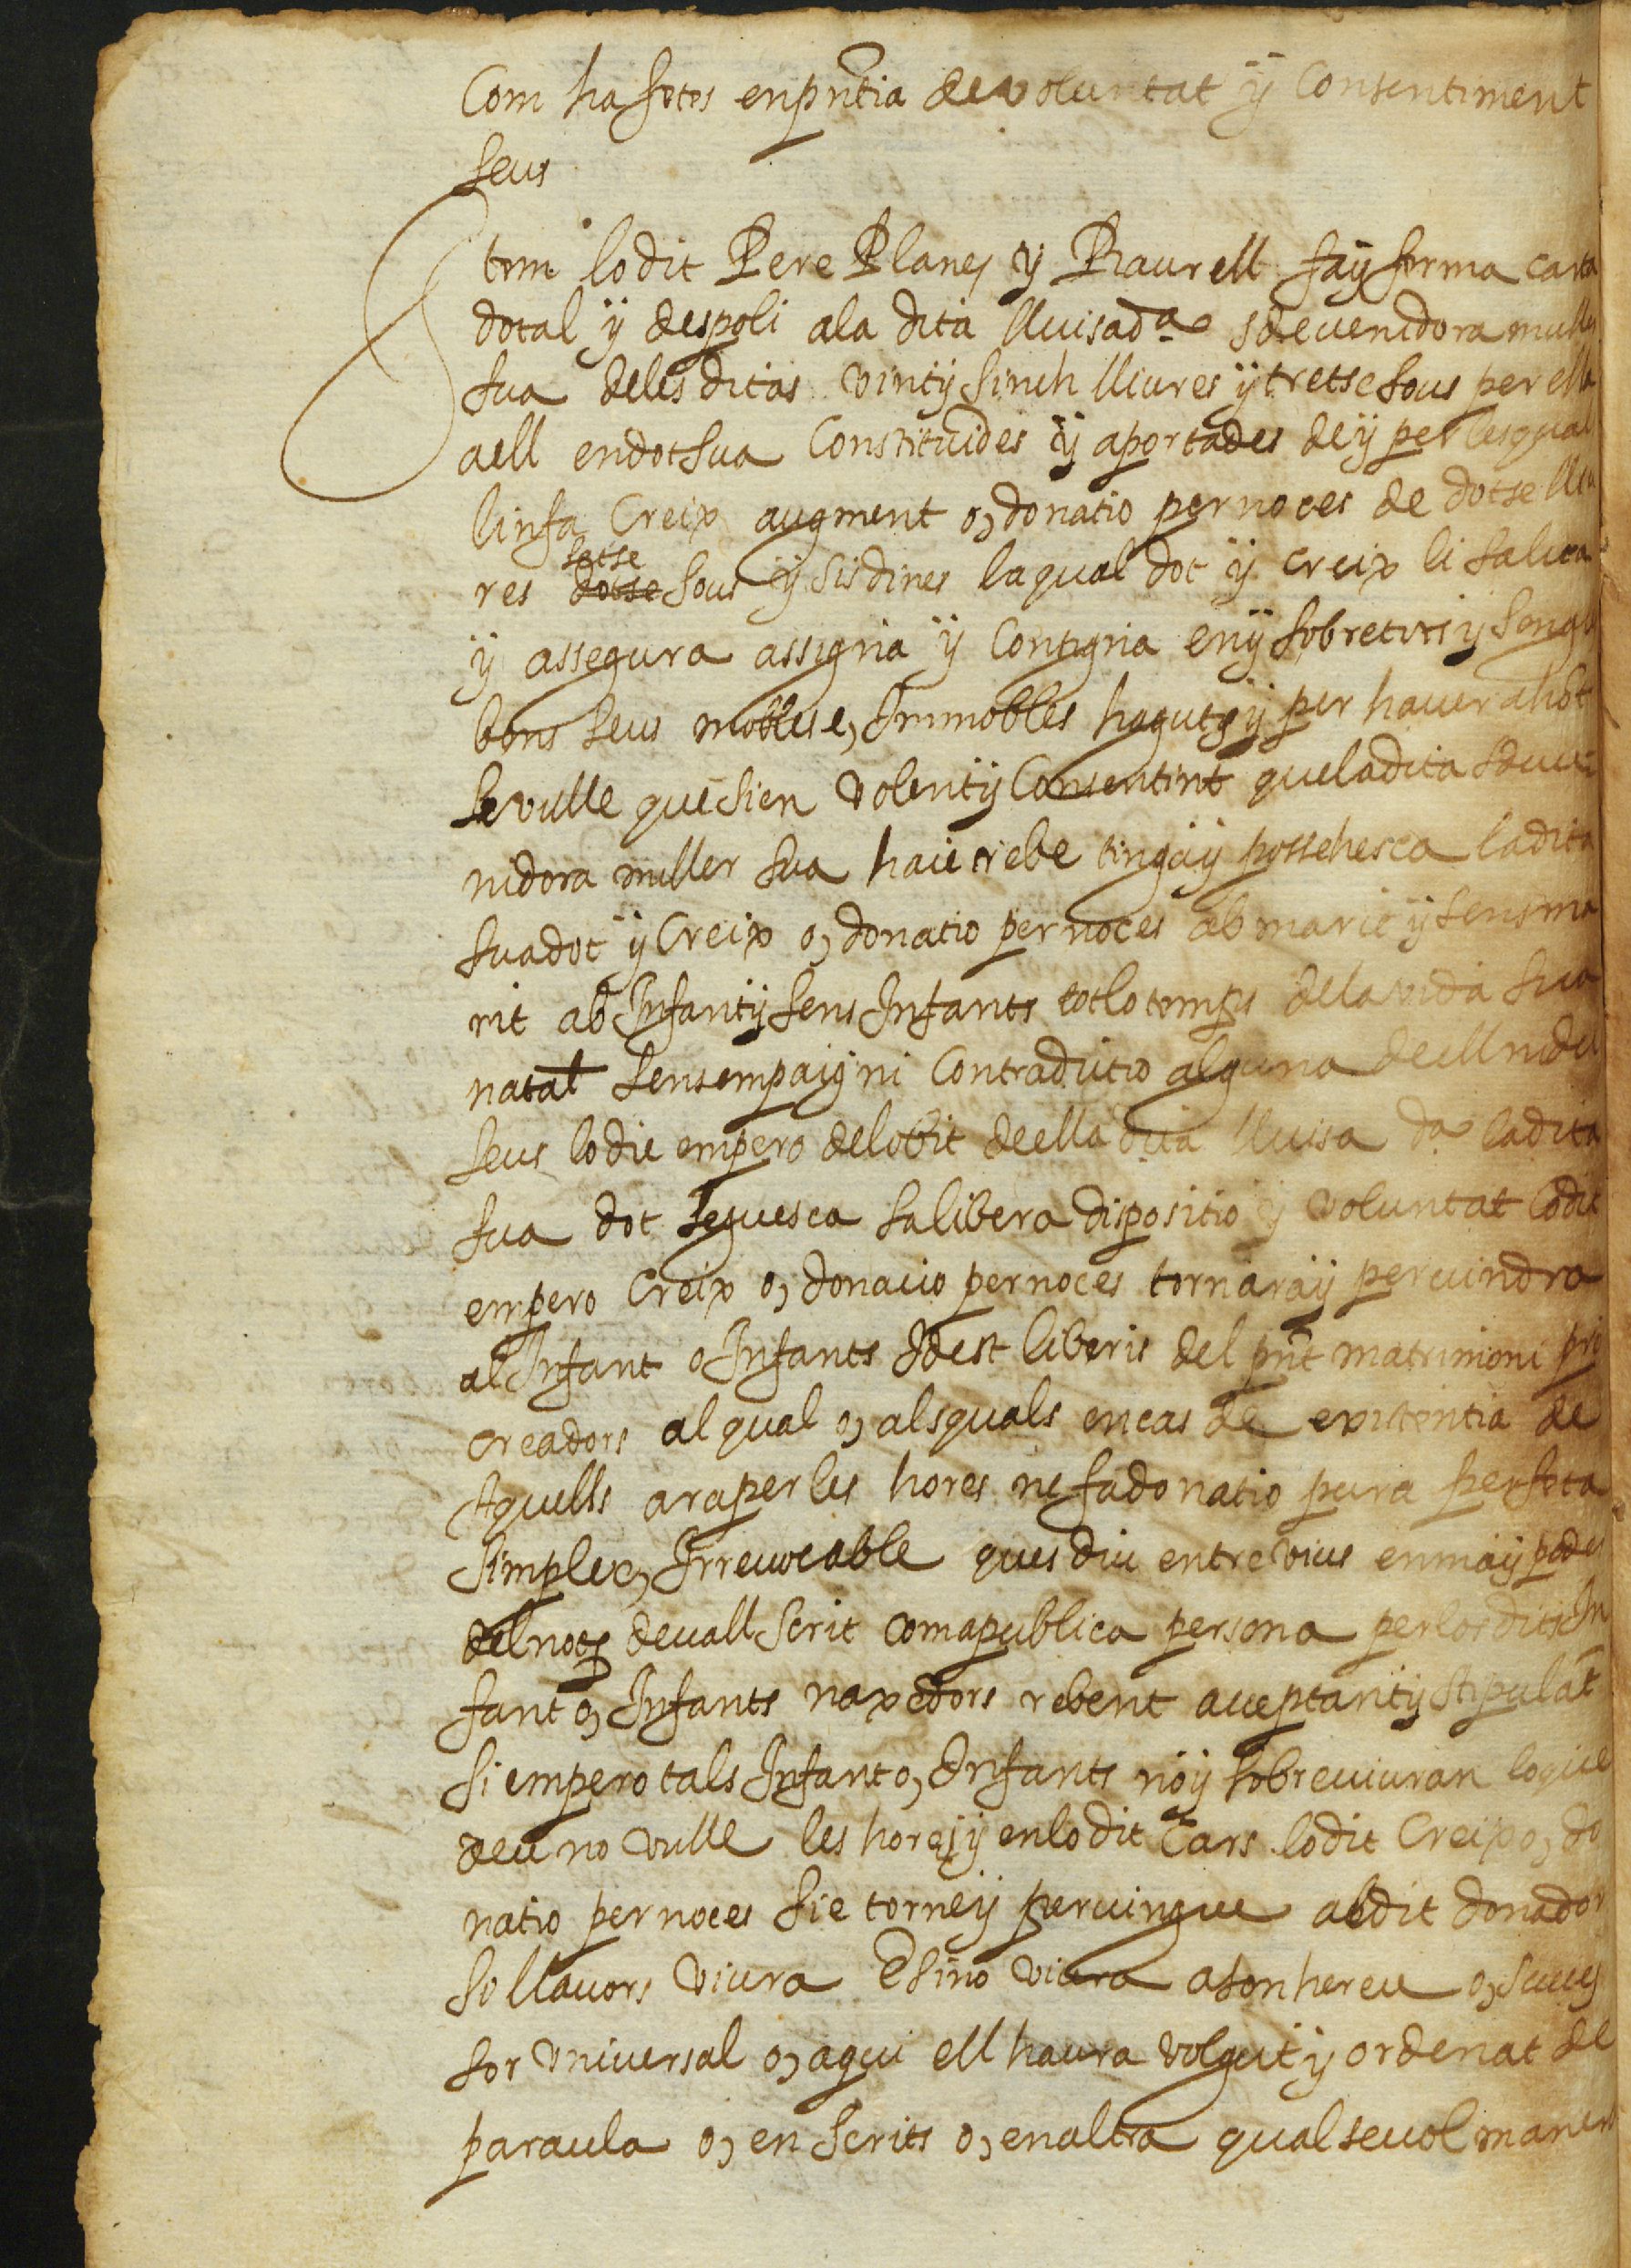 Com ha fetes en pñtia de voluntat ÿ Consentiment
seus
Item lo dit Pere Planes ÿ Raurell fa ÿ ferma carta
dotal ÿ despoli a la dita lluisa d.ª sdevenidora muller
sua de les ditas vint ÿ sinch lliures ÿ tretse sous per ella
a ell en dot sua Constituides ÿ aportades de ÿ per les qual
li n fa Creix augment o, donatio per noces de dotse lliu
res dotse setse sous ÿ sis dines la qual dot ÿ creix li salva
ÿ assegura assigna ÿ Consigna en ÿ sobre tots ÿ sengles
bens seus mobles e, Immobles haguts ÿ per haver a hõt
se vulle que sien volent ÿ Consentint que la dita sdeve
nidora muller sua haie rebe tinga ÿ possehesca la dita
sua dot ÿ Creix o, donatio per noces ab marit ÿ sens ma
rit ab Infant ÿ sens Infants tot lo temps de la vida sua
natal sens empaig ni Contradictio alguna de ell ni dels
seus lo die empero del obit de ella dita lluisa d.ª la dita
sua dot seguesca sa libera dispositio ÿ voluntat lo dit
empero Creix o, donacio per noces tornara ÿ pervindra
al Infant o Infants Idest liberis del pñt matrimoni pro
creadors al qual o, als quals en cas de existentia de
Aquells ara per les hores ne fa donatio pura perfeta
simple e, Irrevocable ques diu entre vius en ma ÿ poder
del notⁱ devall scrit com a publica persona per los dits In
fant o, Infants naxedors rebent acceptant ÿ stipulãt
Si empero tals Infant o, Infants no ÿ sobreviuran lo que
deu no vulle les hores ÿ en lo dit Cars lo dit Creix o, do
natio per noces sie torne ÿ pervingue al dit donador
si llavors viura E si no viura a son hereu o, succes
sor universal o, a qui ell haura volgut ÿ ordenat de
paraula o, en scrits o, en altra qualsevol manera